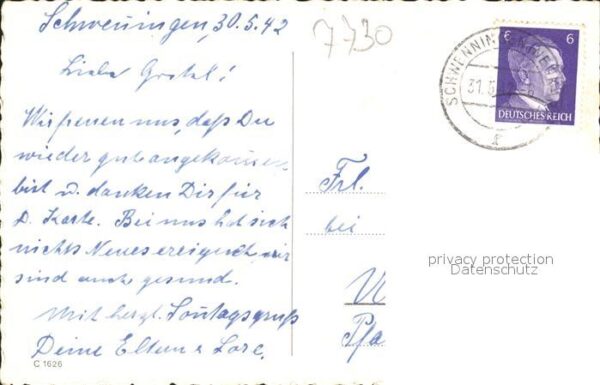 Schwenningen, 30.5.42
7730
Liebe Gretel!
Wir freuen uns, daß Du
wieder gut angekommen
bist u. danken Dir für
D. Karte. Bei uns hat sich
nichts Neues ereignet, wir
sind auch gesund.
Mit herzl. Sonntagsgruß
Deine Eltern & Lore.
C 1626
6 6
DEUTSCHES REICH
SCHWENNINGEN
31.5.
Frl.
bei
Pfa
privacy protection
Datenschutz